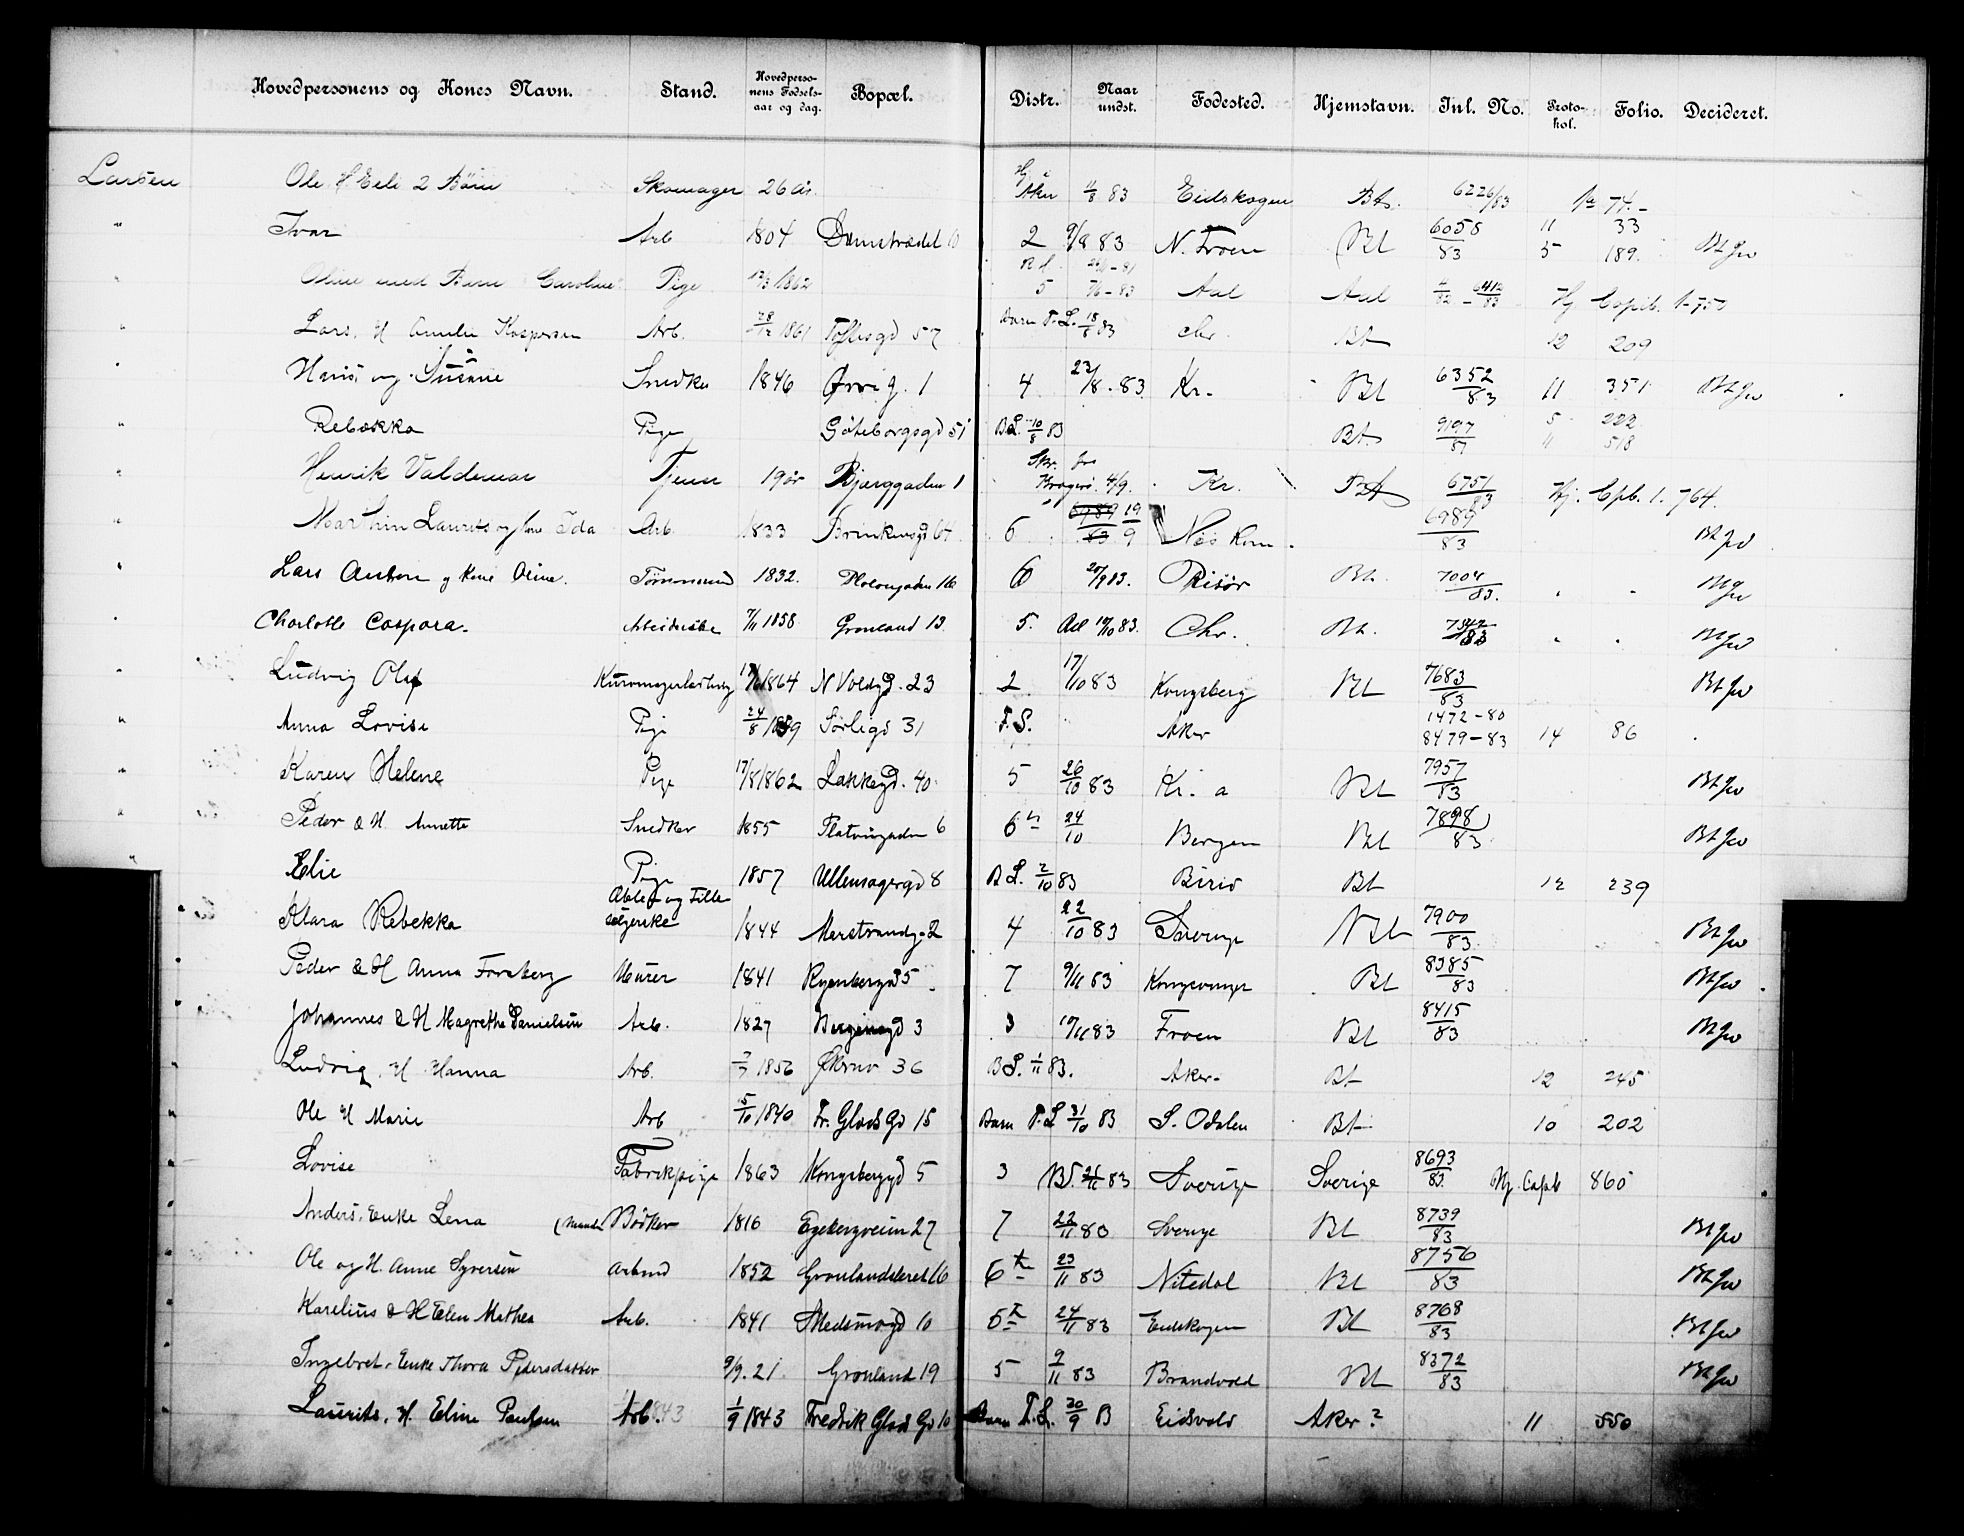 Hovedpersonens og Kones Navn. Stand. Hovedpersonens Fødselsaar og dag. Bopæl. Distr. Naar undst. Fødested. Hjemstavn. Inl. No. Protokol. Folio. Decideret.
Larsen Ole H Eli 2 Børn Skomager 26 år. Aker 4/8 83 Eidskogen Bt. 6226/83 74.-
" Ivar Arb 1804 Damstrædet 10 2 9/8 83 N. Froen Bt 6058/83 11 33 5 189. Bt Jw
" Oline med Barn Caroline Pige 13/3 1862 5 7/6-83 Aal Aal Hj. Copib. 1-750
" Lars, H Amalie Kaspersen Arb. 28/12 1861 Toftesgd 57 Barn F.L. 18/8 83 Chr. Bt 12 209
" Hans og Susane Snedker 1846 4 23/8.83 Kr. Bt 6352/83 11 351 Bt Jw
" Rebekka Pige Göteborgsgd 51 B.L. 10/8 83 Bt 9197/87 5 222 11 518
" Henrik Valdemar Tjener 19 år Bjerggaden 1 Kragerø. 4/9. Kr. Bt 6751/83 Hj. Cpb. 1. 764.
" Marthin Laurits og Kone Ida Arb. 1833 Brinkensgd 64 6 19/9 Næs Rom. 6989/83 Bt Jw
" Lars Anton og Kone Oline. Tømmermd 1832. Platougaden 16 6 20/9 83. Risør Bt. 7004/83. " " Bt Jw
" Charlotte Caspara. Arbeiderske 7/11 1858 Grønland 13 5. 19/10 83. Chr. Bt. 7342/83 " " Bt Jw
" Ludvig Oluf 17/6 1864 N Voldgd. 23 2 17/10 83 Kongsberg Bt 7683/83 Bt Jw
" Anna Lovise Pige 24/8 1859 Sørligd 31 F.S. Aker 1472-80 8479-83 14 86
" Karen Helene Pige 17/8 1862 Lakkegd. 40 5 26/10 83 Kr. a Bt 7957/83 Bt Jw
" Peder & H. Annette Snedker 1855 Platougaden 6 6 24/10 Bergen Bt 7898/83 Bt Jw
" Elie Pige 1857 Ullensagergd 8 B L. 2/10 83 Birid Bt 12 239
" Klara Rebekka Æble og Fille sælgerske 1844 Marstrandg. 2 4 22/10 83 Sverige Bt 7900/83 Bt Jw
" Peder & H Anna Forsberg Murer 1841 Ryenbergd 5 7 9/11 83 Kongsvinger Bt 8385/83 Bt Jw
" Johannes & H Magrethe Danielsen Arb. 1827 Bergensgd 3 3 10/11 83 Froen Bt 8415/83 Bt Jw
" Ludvig, H. Hanna Arb. 1856 Økernv 36 B S. 1/11 83. Aker. Bt 12 245
" Ole H Marie Arb 5/10 1840 Fr. Glads Gd 15 Barn F.L 31/10 83 S. Odalen Bt 10 202
" Lovise Fabrikpige 1863 Kongsberggd 5 3 21/11 83 Sverige Sverige 8693/83. Hj. Copib 860
" Anders, Enke Lena (Manden Bødker 1816 Egebergveien 27 7 22/11 83 Sverige Bt 8739/83 Bt Jw
" Ole og H. Anne Syversen Arbmd 1852 Grønlandsleret 16 6 23/11 83 Nitedal Bt 8756/83 Bt Jw
" Karelius & H Elen Mathea Arb. 1841 Smedsmogd 10 5 24/11 83 Eidskogen Bt 8768/83 Bt Jw
" Ingebret, Enke Thora Pedersdatter 9/9. 21. Grønland 19 5 9/11 83 Brandvold Bt 8372/83 Bt Jw
" Laurits, H. Eline Paulsen Arb. 1/9 1843 Fredrik Glads Gd 10 Barn F.L. 20/9 83 Eidsvold Aker? 11 550